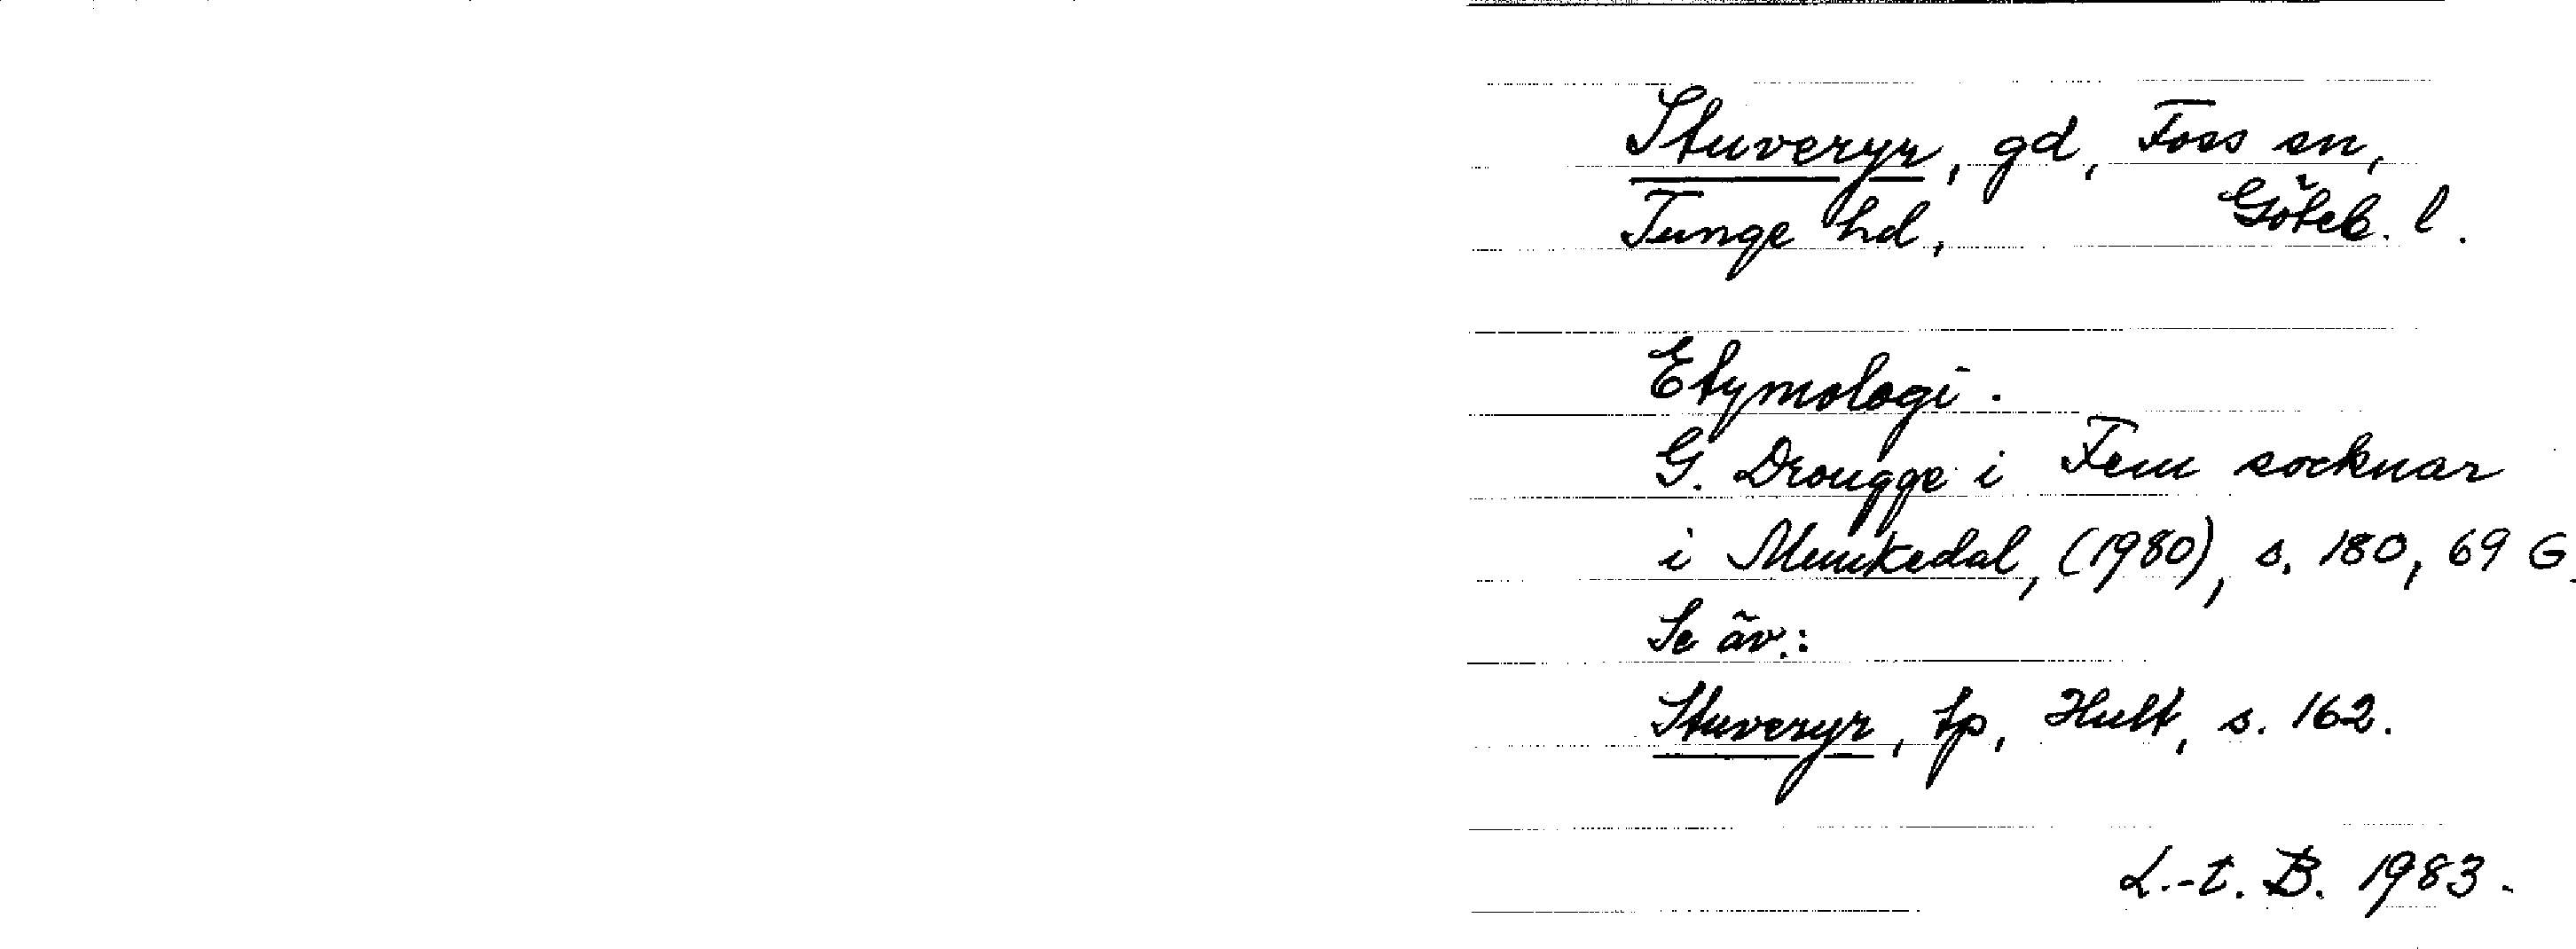 Stuveryr, gd, Foss sn,
Tunge hd, Göteb. l.
Etymologi.
G. Drougge i Fem socknar
i Munkedal, (1980), s. 180, 69 G.
Se äv.:
Stuveryr, tp, Hult, s. 162.
L.-t. B. 1983.